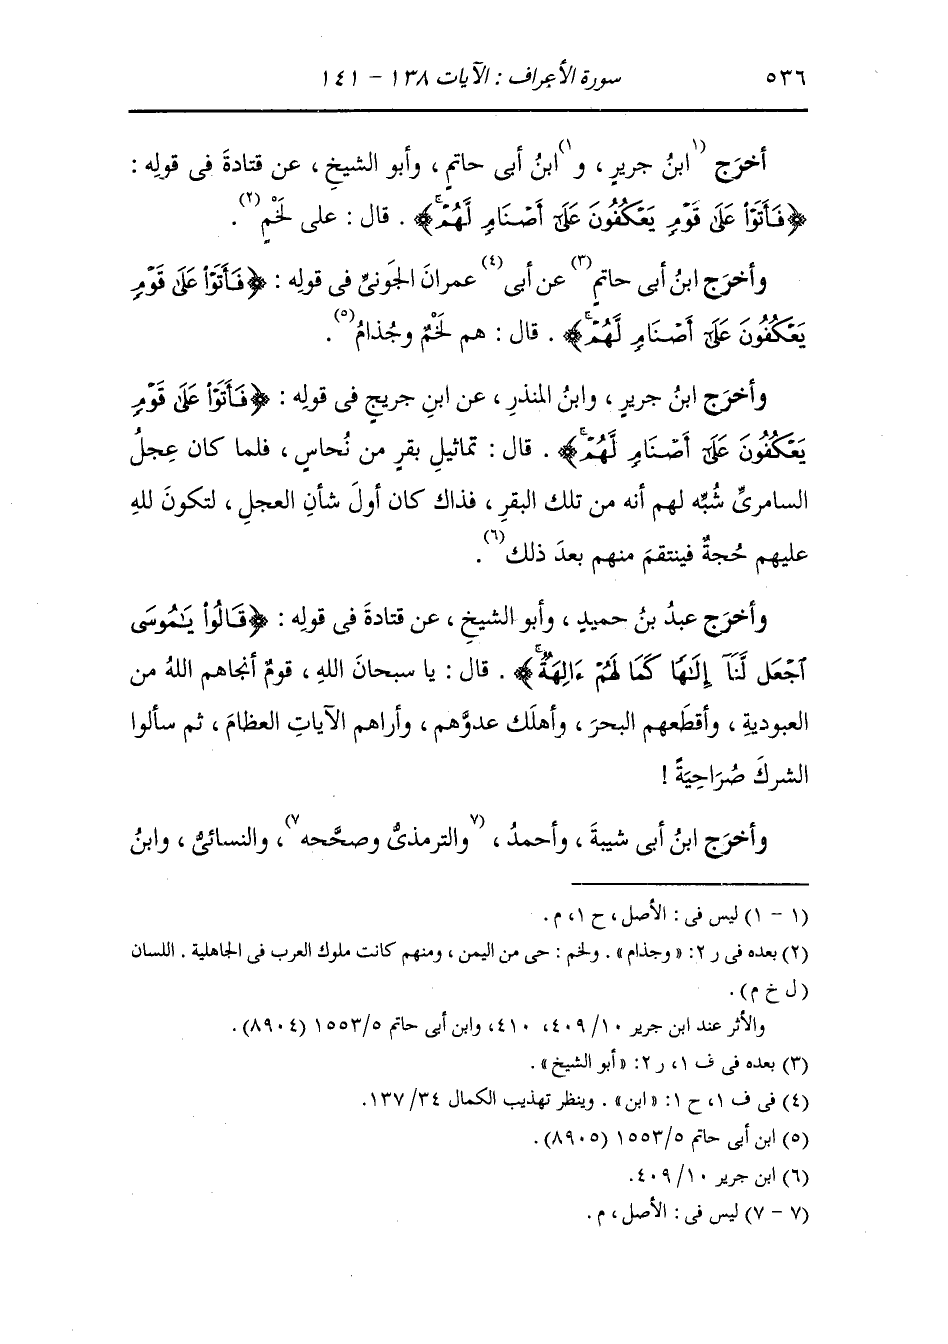 ٥٣٦ سورة الأعراف : الآيات ١٣٨ - ١٤١
أخرَج (١ابنُ جريرٍ ، و١)ابنُ أبى حاتمٍ ، وأبو الشيخِ ، عن قتادةَ فى قولِه :
﴿فَأَتَوْا۟ عَلَىٰ قَوْمٍ يَعْكُفُونَ عَلَىٰٓ أَصْنَامٍ لَّهُمْ ۚ﴾ . قال : على لَخْمٍ(٢) .
وأخرَج ابنُ أبى حاتمٍ(٣) عن أبى(٤) عمرانَ الجَونىِّ فى قولِه : ﴿فَأَتَوْا۟ عَلَىٰ قَوْمٍ
يَعْكُفُونَ عَلَىٰٓ أَصْنَامٍ لَّهُمْ ۚ﴾ . قال : هم لَخْمٌ وجُذامُ(٥) .
وأخرَج ابنُ جريرٍ ، وابنُ المنذرِ ، عن ابنِ جريجٍ فى قولِه : ﴿فَأَتَوْا۟ عَلَىٰ قَوْمٍ
يَعْكُفُونَ عَلَىٰٓ أَصْنَامٍ لَّهُمْ ۚ﴾ . قال : تماثيلِ بقرٍ من نُحاسٍ ، فلما كان عِجلُ
السامرىِّ شُبِّه لهم أنه من تلك البقرِ ، فذاك كان أولَ شأنِ العجلِ ، لتكونَ للهِ
عليهم حُجةٌ فينتقمَ منهم بعدَ ذلك(٦) .
وأخرَج عبدُ بنُ حميدٍ ، وأبو الشيخِ ، عن قتادةَ فى قولِه : ﴿قَالُوا۟ يَٰمُوسَى
ٱجْعَل لَّنَآ إِلَٰهًا كَمَا لَهُمْ ءَالِهَةٌ ۚ﴾ . قال : يا سبحانَ اللهِ ، قومٌ أنجاهم اللهُ من
العبوديةِ ، وأقطَعهم البحرَ ، وأهلَك عدوَّهم ، وأراهم الآياتِ العظامَ ، ثم سألوا
الشركَ صُرَاحِيَةً !
وأخرَج ابنُ أبى شيبةَ ، وأحمدُ ، (٧والترمذىُّ وصحَّحه٧)، والنسائىُّ ، وابنُ
(١ - ١) ليس فى : الأصل ، ح ١، م .
(٢) بعده فى ر ٢: «وجذام» . ولخم : حى من اليمن ، ومنهم كانت ملوك العرب فى الجاهلية . اللسان
(ل خ م) .
والأثر عند ابن جرير ١٠/ ٤٠٩، ٤١٠، وابن أبى حاتم ١٥٥٣/٥ (٨٩٠٤) .
(٣) بعده فى ف ١، ر ٢: «أبو الشيخ» .
(٤) فى ف ١، ح ١: «ابن» . وينظر تهذيب الكمال ٣٤/ ١٣٧.
(٥) ابن أبى حاتم ١٥٥٣/٥ (٨٩٠٥) .
(٦) ابن جرير ١٠/ ٤٠٩.
(٧ - ٧) ليس فى : الأصل ، م .